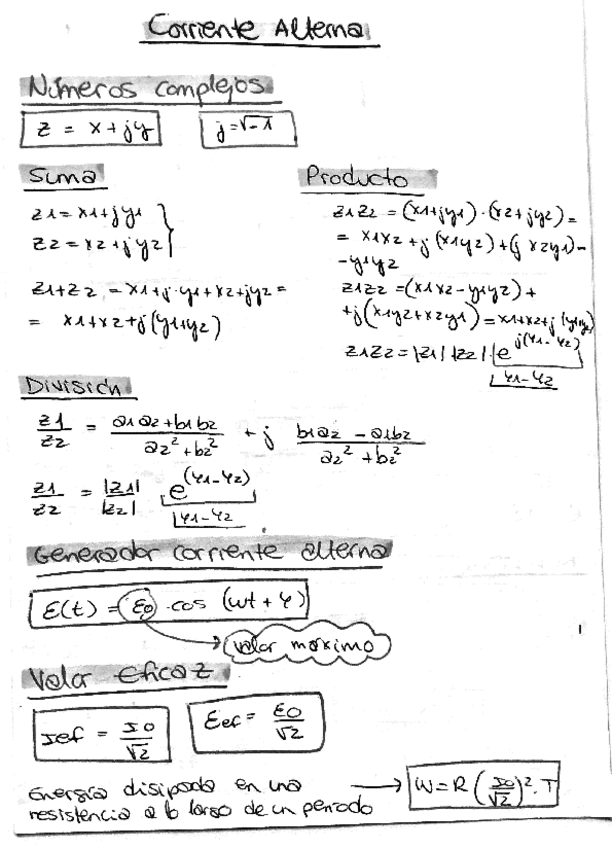 Corriente Alterna
Números complejos
z = x + jy
j = √-1
Suma
z1 = x1 + jy1
z2 = x2 + jy2
z1 + z2 = x1 + j·y1 + x2 + jy2 =
= x1 + x2 + j(y1+y2)
Producto
z1z2 = (x1+jy1)·(x2+jy2) =
= x1x2 + j(x1y2) + (j x2y1) -
- y1y2
z1z2 = (x1x2 - y1y2) +
+ j(x1y2 + x2y1) = x1+x2+j(y1+y2)
z1z2 = |z1| |z2| · e^j(φ1-φ2)
φ1-φ2
División
z1/z2 = (a1a2 + b1b2)/(a2² + b2²) + j (b1a2 - a1b2)/(a2² + b2²)
z1/z2 = |z1|/|z2| e^(φ1-φ2)
φ1-φ2
Generador corriente alterna
ε(t) = ε0 · cos (wt + φ)
valor maximo
Valor eficaz
Ief = I0/√2
εef = ε0/√2
Energía disipada en una
resistencia a lo largo de un periodo
W = R (I0/√2)² · T